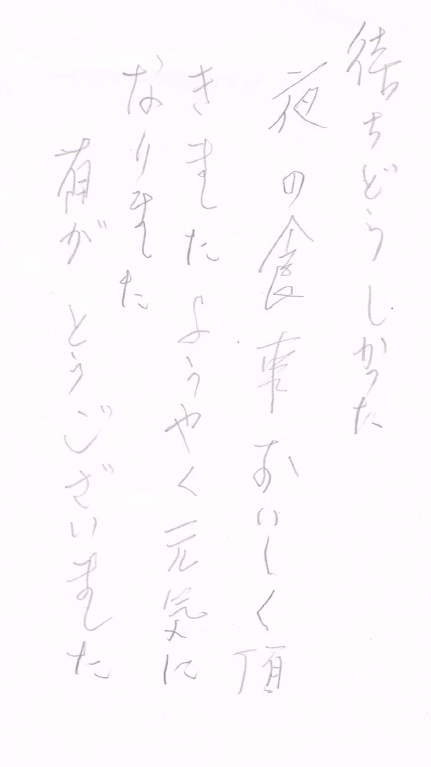 待ちどうしかった
夜の食事おいしく頂
きましたようやく元気に
なりました
有がとうございました